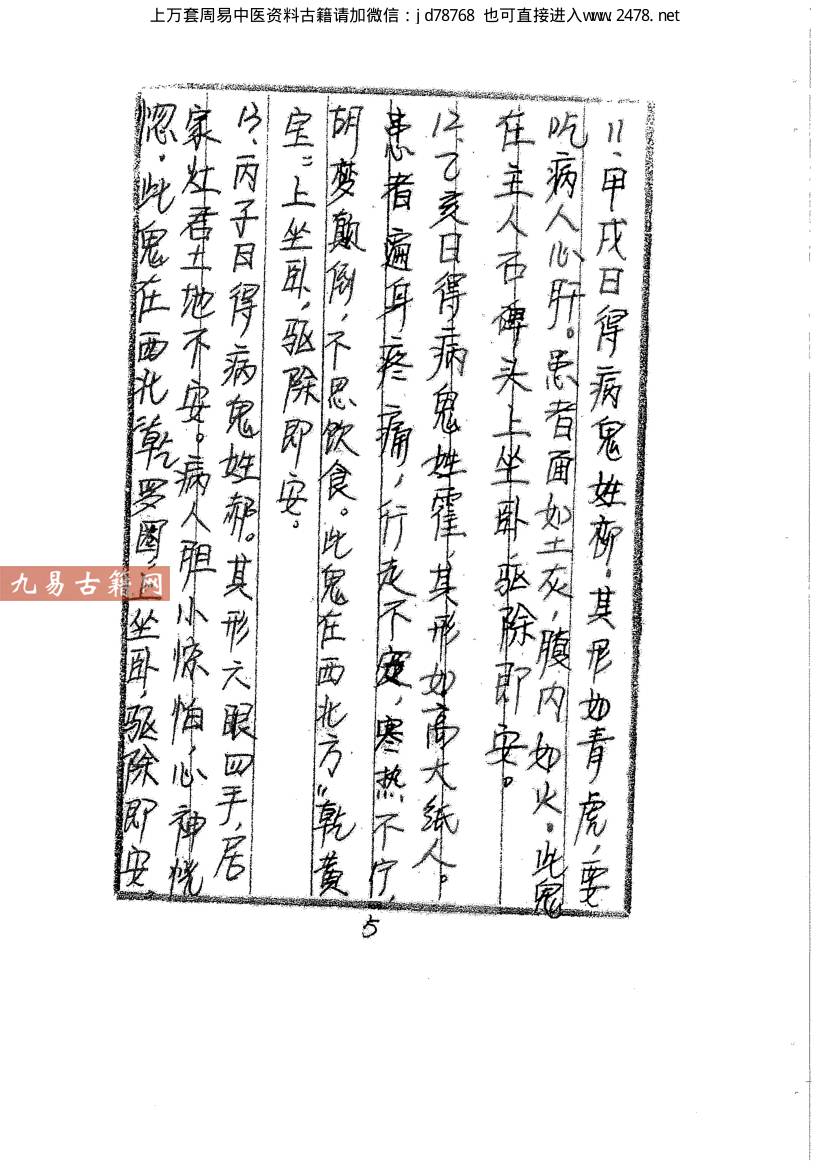 上万套周易中医资料古籍请加微信：jd78768 也可直接进入www.2478.net
11、甲戌日得病鬼姓柳。其形如青虎，要
吃病人心肝。患者面如土灰，腹内如火。此鬼
在主人石碑头上坐卧驱除即安。
12、乙亥日得病鬼姓霍，其形如高大纸人。
患者遍身疼痛，行走不定，寒热不宁，
胡梦颠倒，不思饮食。此鬼在西北方“乾黄
宝”上坐卧，驱除即安。
13、丙子日得病鬼姓郝。其形六眼四手，居
家灶君土地不安。病人胆小惊怕，心神恍
惚。此鬼在西北“乾罗圈”上坐卧，驱除即安。
九易古籍网
5